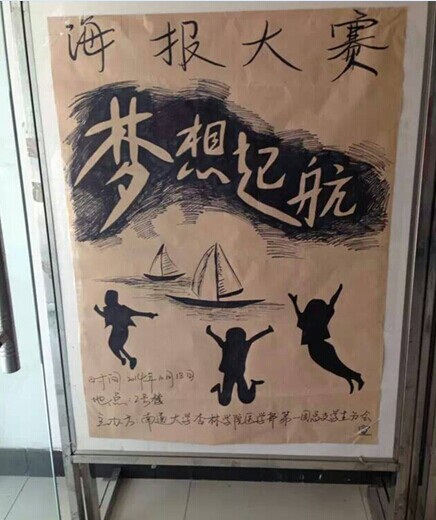 海报大赛
梦想起航
时间 2014年 月 日
地点:2号楼
主办方:南通大学杏林学院医学部第一团总支学生分会
宣